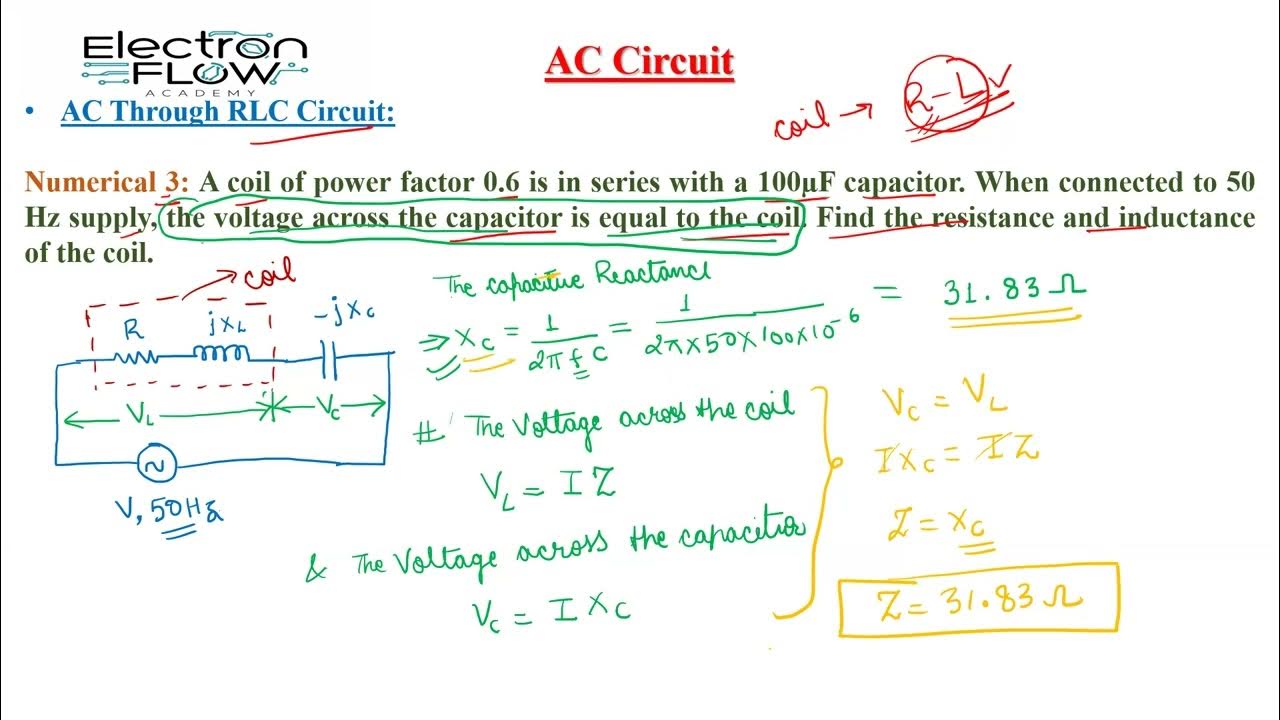 Electron
FLOW
ACADEMY
AC Circuit
coil → R-L
• AC Through RLC Circuit:
Numerical 3: A coil of power factor 0.6 is in series with a 100µF capacitor. When connected to 50
Hz supply, the voltage across the capacitor is equal to the coil. Find the resistance and inductance
of the coil.
coil
R jXL -jXc
VL Vc
V, 50Hz
The capacitive Reactance
⇒ Xc = 1/2πfC = 1/2π×50×100×10⁻⁶ = 31.83 Ω
# The Voltage across the coil
VL = IZ
& The Voltage across the capacitior
Vc = I Xc
Vc = VL
IXc = IZ
Z = Xc
Z = 31.83 Ω